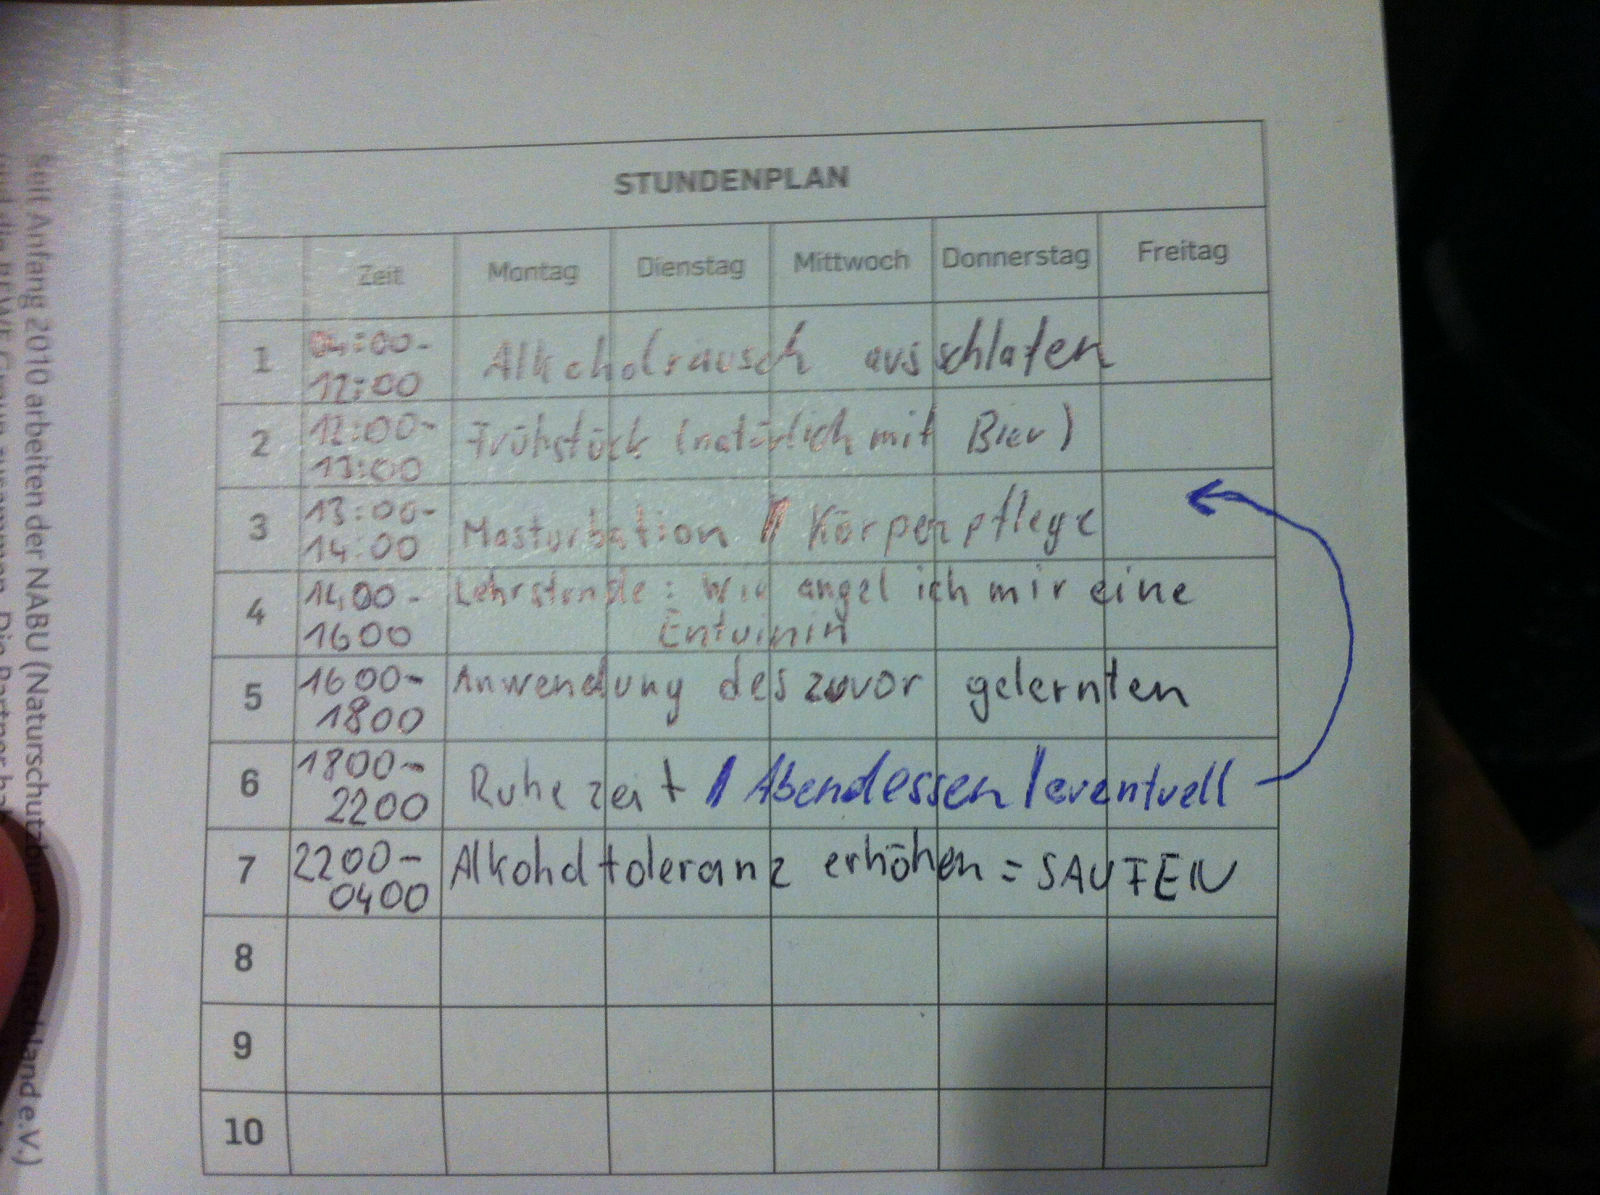 STUNDENPLAN
Zeit Montag Dienstag Mittwoch Donnerstag Freitag
1 04:00- Alkoholrausch ausschlafen
12:00
2 12:00- Frühstück (natürlich mit Bier)
13:00
3 13:00- Masturbation / Körperpflege
14:00
4 14.00- Lehrstunde: Wie angel ich mir eine
1600 Entuinin
5 1600- Anwendung des zuvor gelernten
1800
6 1800- Ruhezeit / Abendessen / eventuell
2200
7 2200- Alkoholtoleranz erhöhen = SAUFEN
0400
8
9
10
Seit Anfang 2010 arbeiten der NABU (Naturschutzbund Deutschland e.V.)
und die REWE Group zusammen. Die Partner